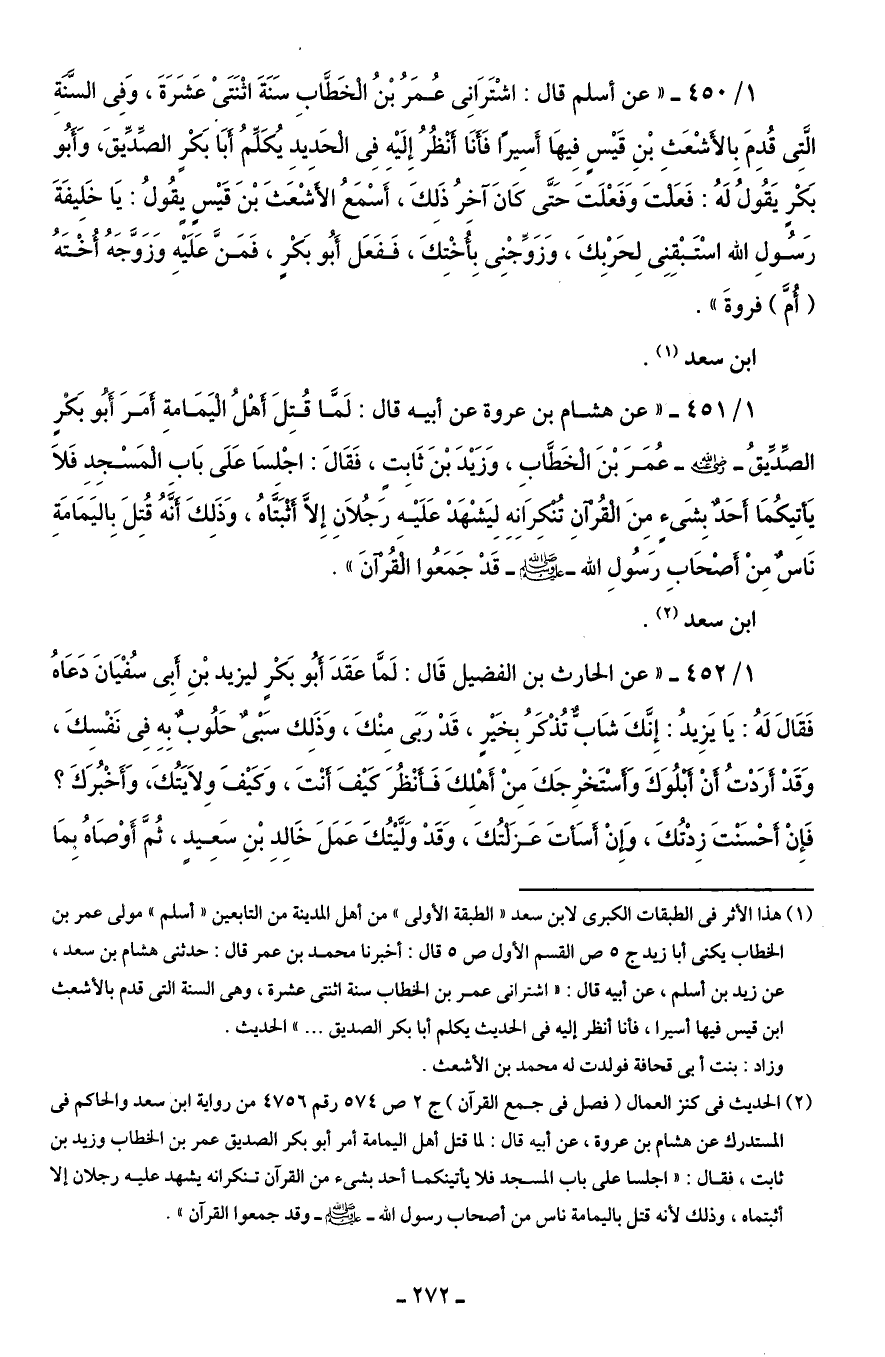 ١/ ٤٥٠ ـ « عن أسلم قال : اشْتَرَانِى عُمَرُ بْنُ الْخَطَّابِ سَنَةَ اثْنَتَىْ عَشَرَةَ ، وَفِى السَّنَّةِ
الَّتِى قُدِمَ بِالأَشْعَثِ بْنِ قَيْسٍ فِيهَا أَسِيرًا فَأَنَا أَنْظُرُ إِلَيْهِ فِى الْحَدِيدِ يُكَلِّمُ أَبَا بَكْرٍ الصِّدِّيقَ، وَأَبُو
بَكْرٍ يَقُولُ لَهُ : فَعَلْتَ وَفَعْلَتَ حَتَّى كَانَ آخِرُ ذَلِكَ ، أَسْمَعُ الأَشْعَثَ بْنَ قَيْسٍ يِقُولُ : يَا خَلِيفَةَ
رَسُولِ الله اسْتَبْقِنِى لِحَرْبِكَ ، وَزَوِّجْنِى بِأُخْتِكَ ، فَفَعَل أَبُو بَكْرٍ ، فَمَنَّ عَلَيْهِ وَزَوَّجَهُ أُخْتَهُ
( أُمَّ ) فروةَ » .
ابن سعد (١) .
١/ ٤٥١ ـ « عن هشام بن عروة عن أبيه قال : لَمَّا قُتِلَ أَهْلُ الْيَمَامةِ أَمَرَ أَبُو بَكْرٍ
الصِّدِّيقُ ـ رضي الله عنه ـ عُمَرَ بْنَ الْخَطَّابِ ، وَزَيْدَ بْنَ ثَابِتٍ ، فَقَالَ : اجْلِسَا عَلَى بَابِ الْمَسْجِدِ فَلاَ
يَأتِيكُمَا أَحَدٌ بِشَىءٍ مِنَ الْقُرْآنِ تُنْكِرَانِهِ لِيَشْهَدْ عَلَيْهِ رَجُلاَنِ إِلاَّ أَثْبَتَّاهُ ، وَذَلِكَ أَنَّهُ قُتِلَ بِالْيَمَامَةِ
نَاسٌ مِنْ أَصْحَابِ رَسُولِ الله ـ صلى الله عليه وسلم ـ قَدْ جَمَعُوا الْقُرْآنَ » .
ابن سعد (٢) .
١/ ٤٥٢ ـ « عن الحارث بن الفضيل قَال : لَمَّا عَقَدَ أَبُو بَكْرٍ ليزيد بْنِ أَبِى سُفْيَانَ دَعَاهُ
فَقَالَ لَهُ : يَا يَزِيدُ : إِنَّكَ شَابٌّ تُذْكَرُ بِخَيْرٍ ، قَدْ رَبَى مِنْكَ ، وَذَلِك سَبْىٌ حَلُوبٌ بِهِ فِى نَفْسِكَ ،
وَقَدْ أَرَدْتُ أَنْ أَبْلُوَكَ وَأَسْتَخْرِجَكَ مِنْ أَهْلِكَ فَأَنْظُرَ كَيْفَ أَنْتَ ، وَكَيْفَ وِلاَيَتُكَ، وَأَخْبُرَكَ ؟
فَإِنْ أَحْسَنْتَ زِدْتُكَ ، وَإِنْ أَسَأتَ عَزَلْتُكَ ، وَقَدْ وَلَّيْتُكَ عَمَلَ خَالِدِ بْنِ سَعِيدٍ ، ثُمَّ أَوْصَاهُ بِمَا
(١) هذا الأثر فى الطبقات الكبرى لابن سعد « الطبقة الأولى » من أهل المدينة من التابعين « أسلم » مولى عمر بن
الخطاب يكنى أبا زيد ج ٥ ص القسم الأول ص ٥ قال : أخبرنا محمد بن عمر قال : حدثنى هشام بن سعد ،
عن زيد بن أسلم ، عن أبيه قال : « اشترانى عمر بن الخطاب سنة اثنتى عشرة ، وهى السنة التى قدم بالأشعث
ابن قيس فيها أسيرا ، فأنا أنظر إليه فى الحديث يكلم أبا بكر الصديق ... » الحديث .
وزاد : بنت أبى قحافة فولدت له محمد بن الأشعث .
(٢) الحديث فى كنز العمال ( فصل فى جمع القرآن ) ج ٢ ص ٥٧٤ رقم ٤٧٥٦ من رواية ابن سعد والحاكم فى
المستدرك عن هشام بن عروة ، عن أبيه قال : لما قتل أهل اليمامة أمر أبو بكر الصديق عمر بن الخطاب وزيد بن
ثابت ، فقال : « اجلسا على باب المسجد فلا يأتينكما أحد بشىء من القرآن تنكرانه يشهد عليه رجلان إلا
أثبتماه ، وذلك لأنه قتل باليمامة ناس من أصحاب رسول الله ـ صلى الله عليه وسلم ـ وقد جمعوا القرآن » .
ـ ٢٧٢ ـ